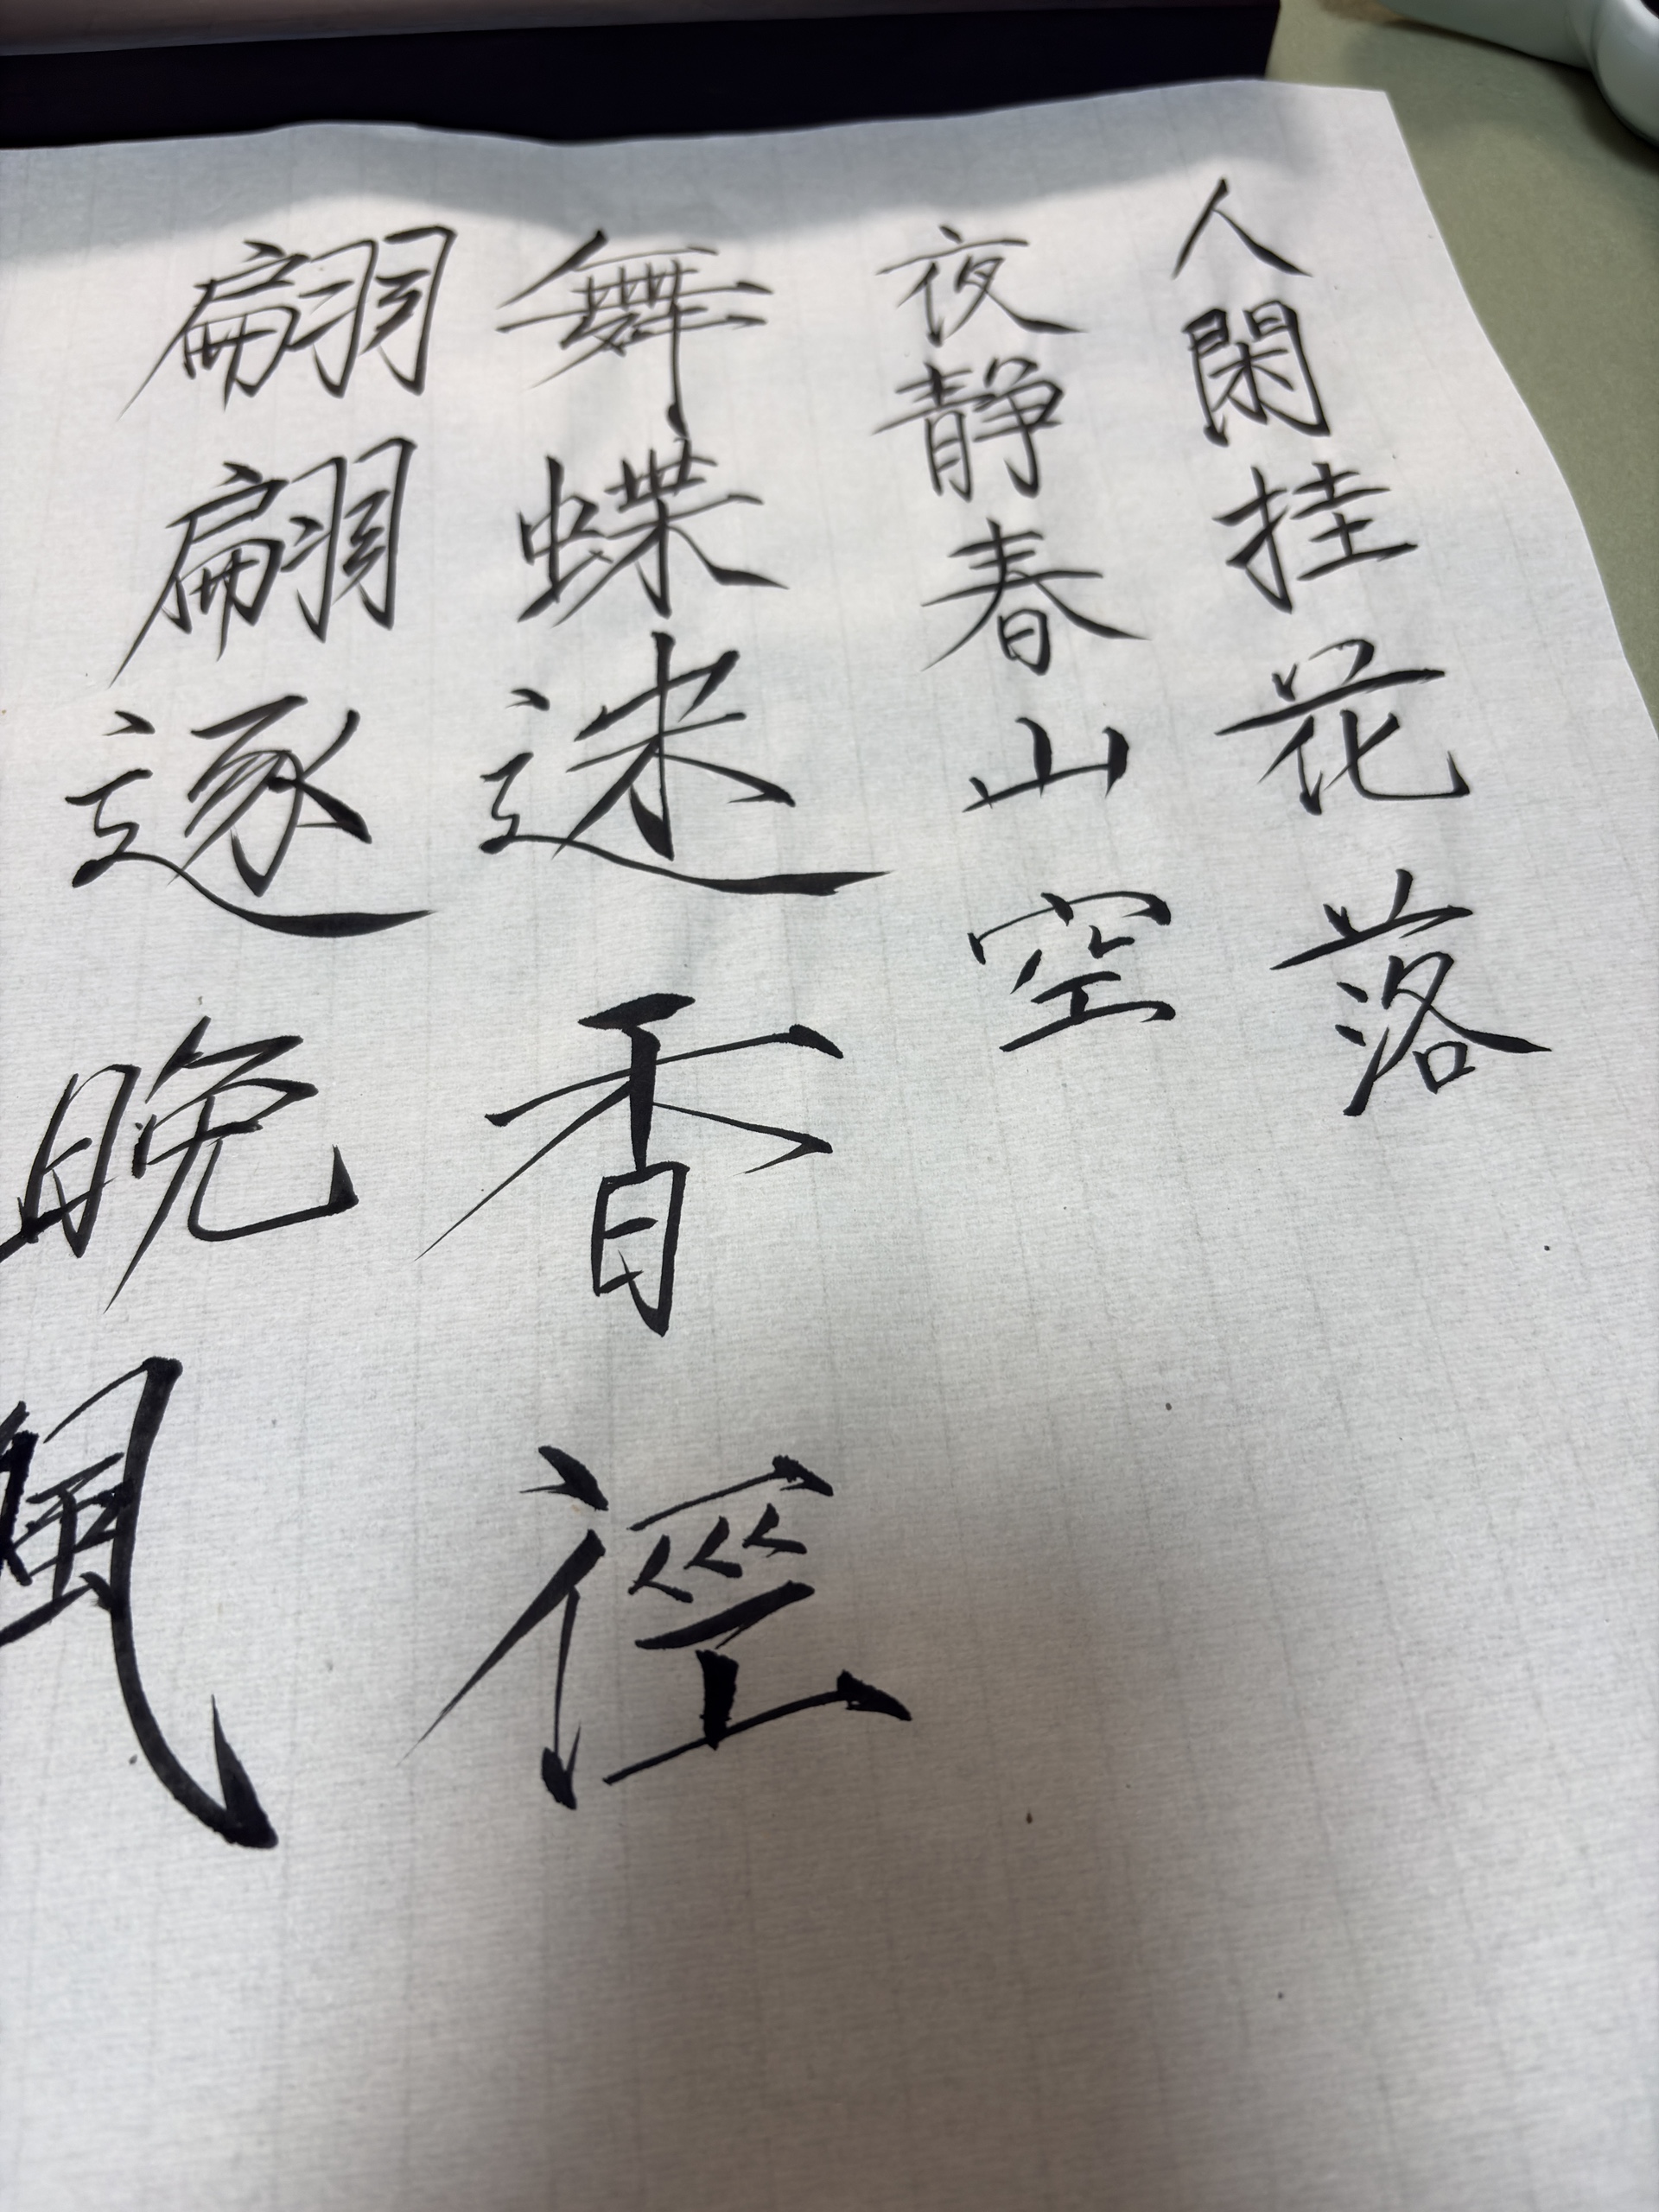 人閑挂花落
夜静春山空
舞蝶迷香徑
翩翩逐晚風